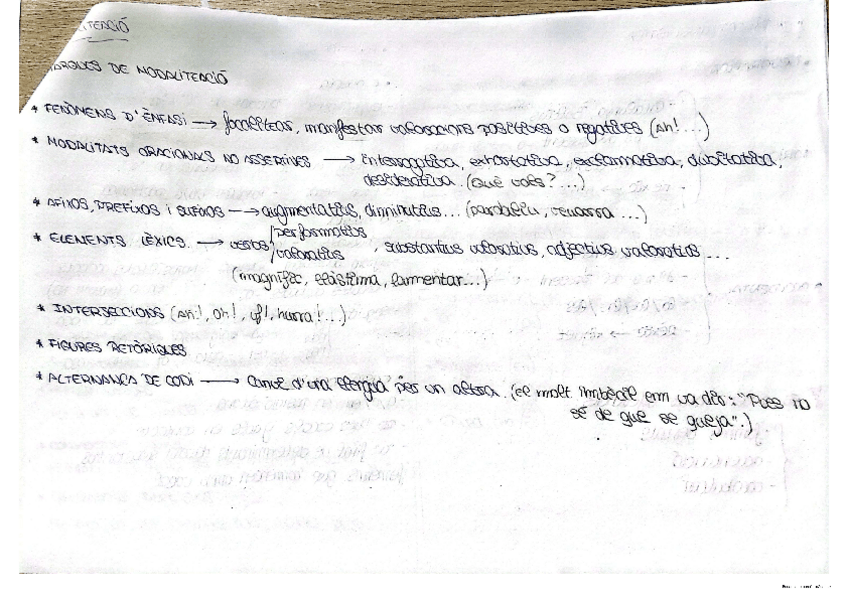 ITZACIÓ
MARQUES DE MODALITZACIÓ
* FENÒMENS D'ÈMFASI → focalitzar, manifestar valoracions positives o negatives (Ah!...)
* MODALITATS ORACIONALS NO ASSERTIVES → interrogativa, exhortativa, exclamativa, dubitativa,
desiderativa. (Què vols?...)
* AFIXOS, PREFIXOS I SUFIXOS → augmentatius, diminutius... (parableu, veuassa...)
* ELEMENTS LÈXICS. → verbs / performatius
valoratius , substantius valoratius, adjectius valoratius...
(magnífic, llàstima, lamentar...)
* INTERJECCIONS (Ah!, oh!, uf!, hurra!...)
* FIGURES RETÒRIQUES
* ALTERNANÇA DE CODI → Canvi d'una llengua per un altra. (el molt imbècil em va dir: "Pues no
sé de que se queja".)